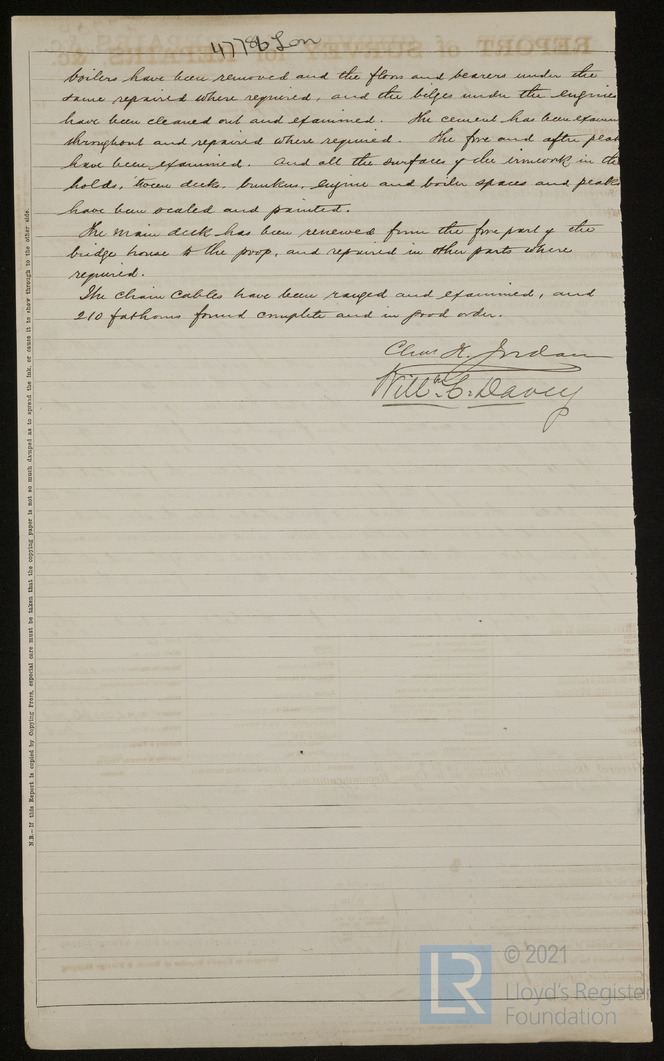 47786 Lon
boilers have been removed and the floors and bearers under the
same repaired where required, and the bilges under the engines
have been cleaned out and examined. The cement has been exam
throughout and repaired where required. The fore and after peak
have been examined. And all the surfaces of the ironwork in the
holds, 'tween decks, bunkers, engine and boiler spaces and peaks
have been scaled and painted.
The main deck has been renewed from the fore part of the
bridge house to the poop, and repaired in other parts where
required.
The chain cables have been ranged and examined, and
210 fathoms found complete and in good order.
Chas H. Jordan
Willm. C. Davey
N.B.—If this Report is copied by Copying Press, especial care must be taken that the copying paper is not so much damped as to spread the ink, or cause it to show through to the other side.
© 2021
LR
Lloyd's Register
Foundation